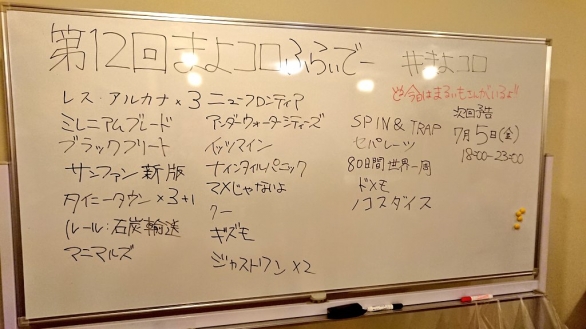 第12回まよコロふらいでー #まよコロ
レス・アルカナ×3
ミレニアムブレード
ブラックフリート
サンファン新版
タイニータウン×3+1
(ルール:石炭輸送
マニマルズ
ニューフロンティア
アンダーウォーターシティーズ
イッツマイン
ナインタイルパニック
マメじゃないよ
クー
ギズモ
ジャストワン×2
SPIN & TRAP
セパレーツ
80日間世界一周
ドメモ
ノコスダイス
今回はまるいもさんがいるよ!!
次回予告
7月5日(金)
18:00-23:00